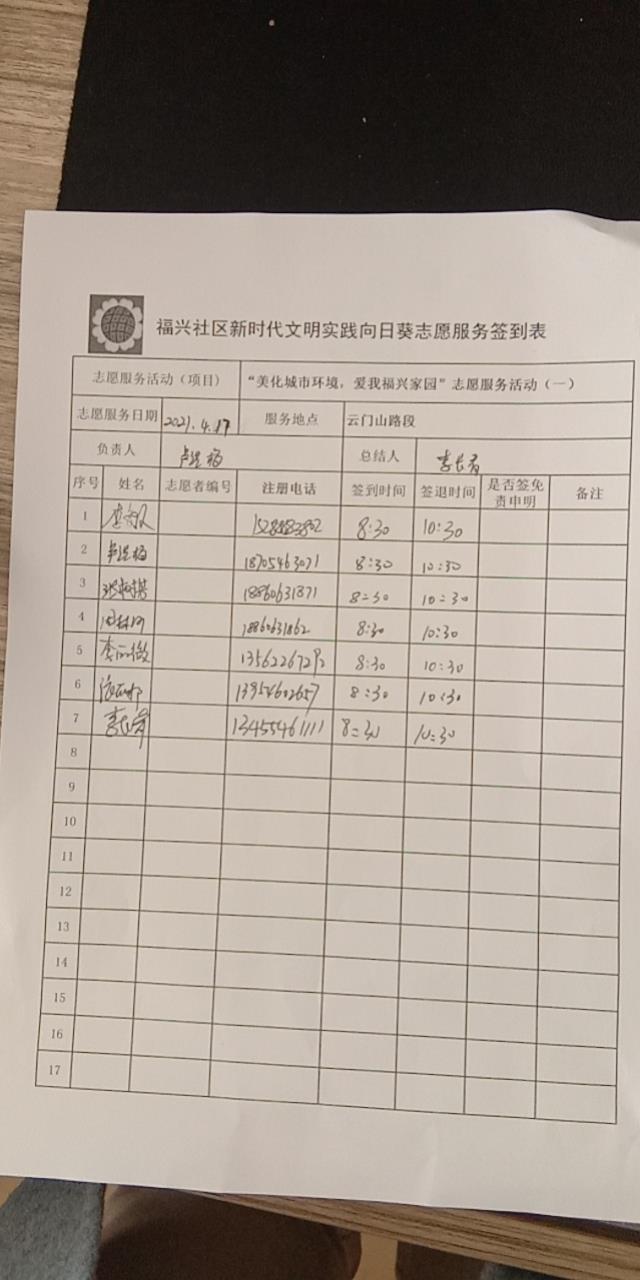 福兴社区新时代文明实践向日葵志愿服务签到表
志愿服务活动（项目） “美化城市环境，爱我福兴家园”志愿服务活动（一）
志愿服务日期 2021.4.17 服务地点 云门山路段
负责人 总结人
序号 姓名 志愿者编号 注册电话 签到时间 签退时间 是否签免责申明 备注
1 8:30 10:30
2 18705463071 8:30 10:30
3 18860631871 8:30 10:30
4 18860631862 8:30 10:30
5 8:30 10:30
6 13954602657 8:30 10:30
7 13455461111 8:30 10:30
8
9
10
11
12
13
14
15
16
17